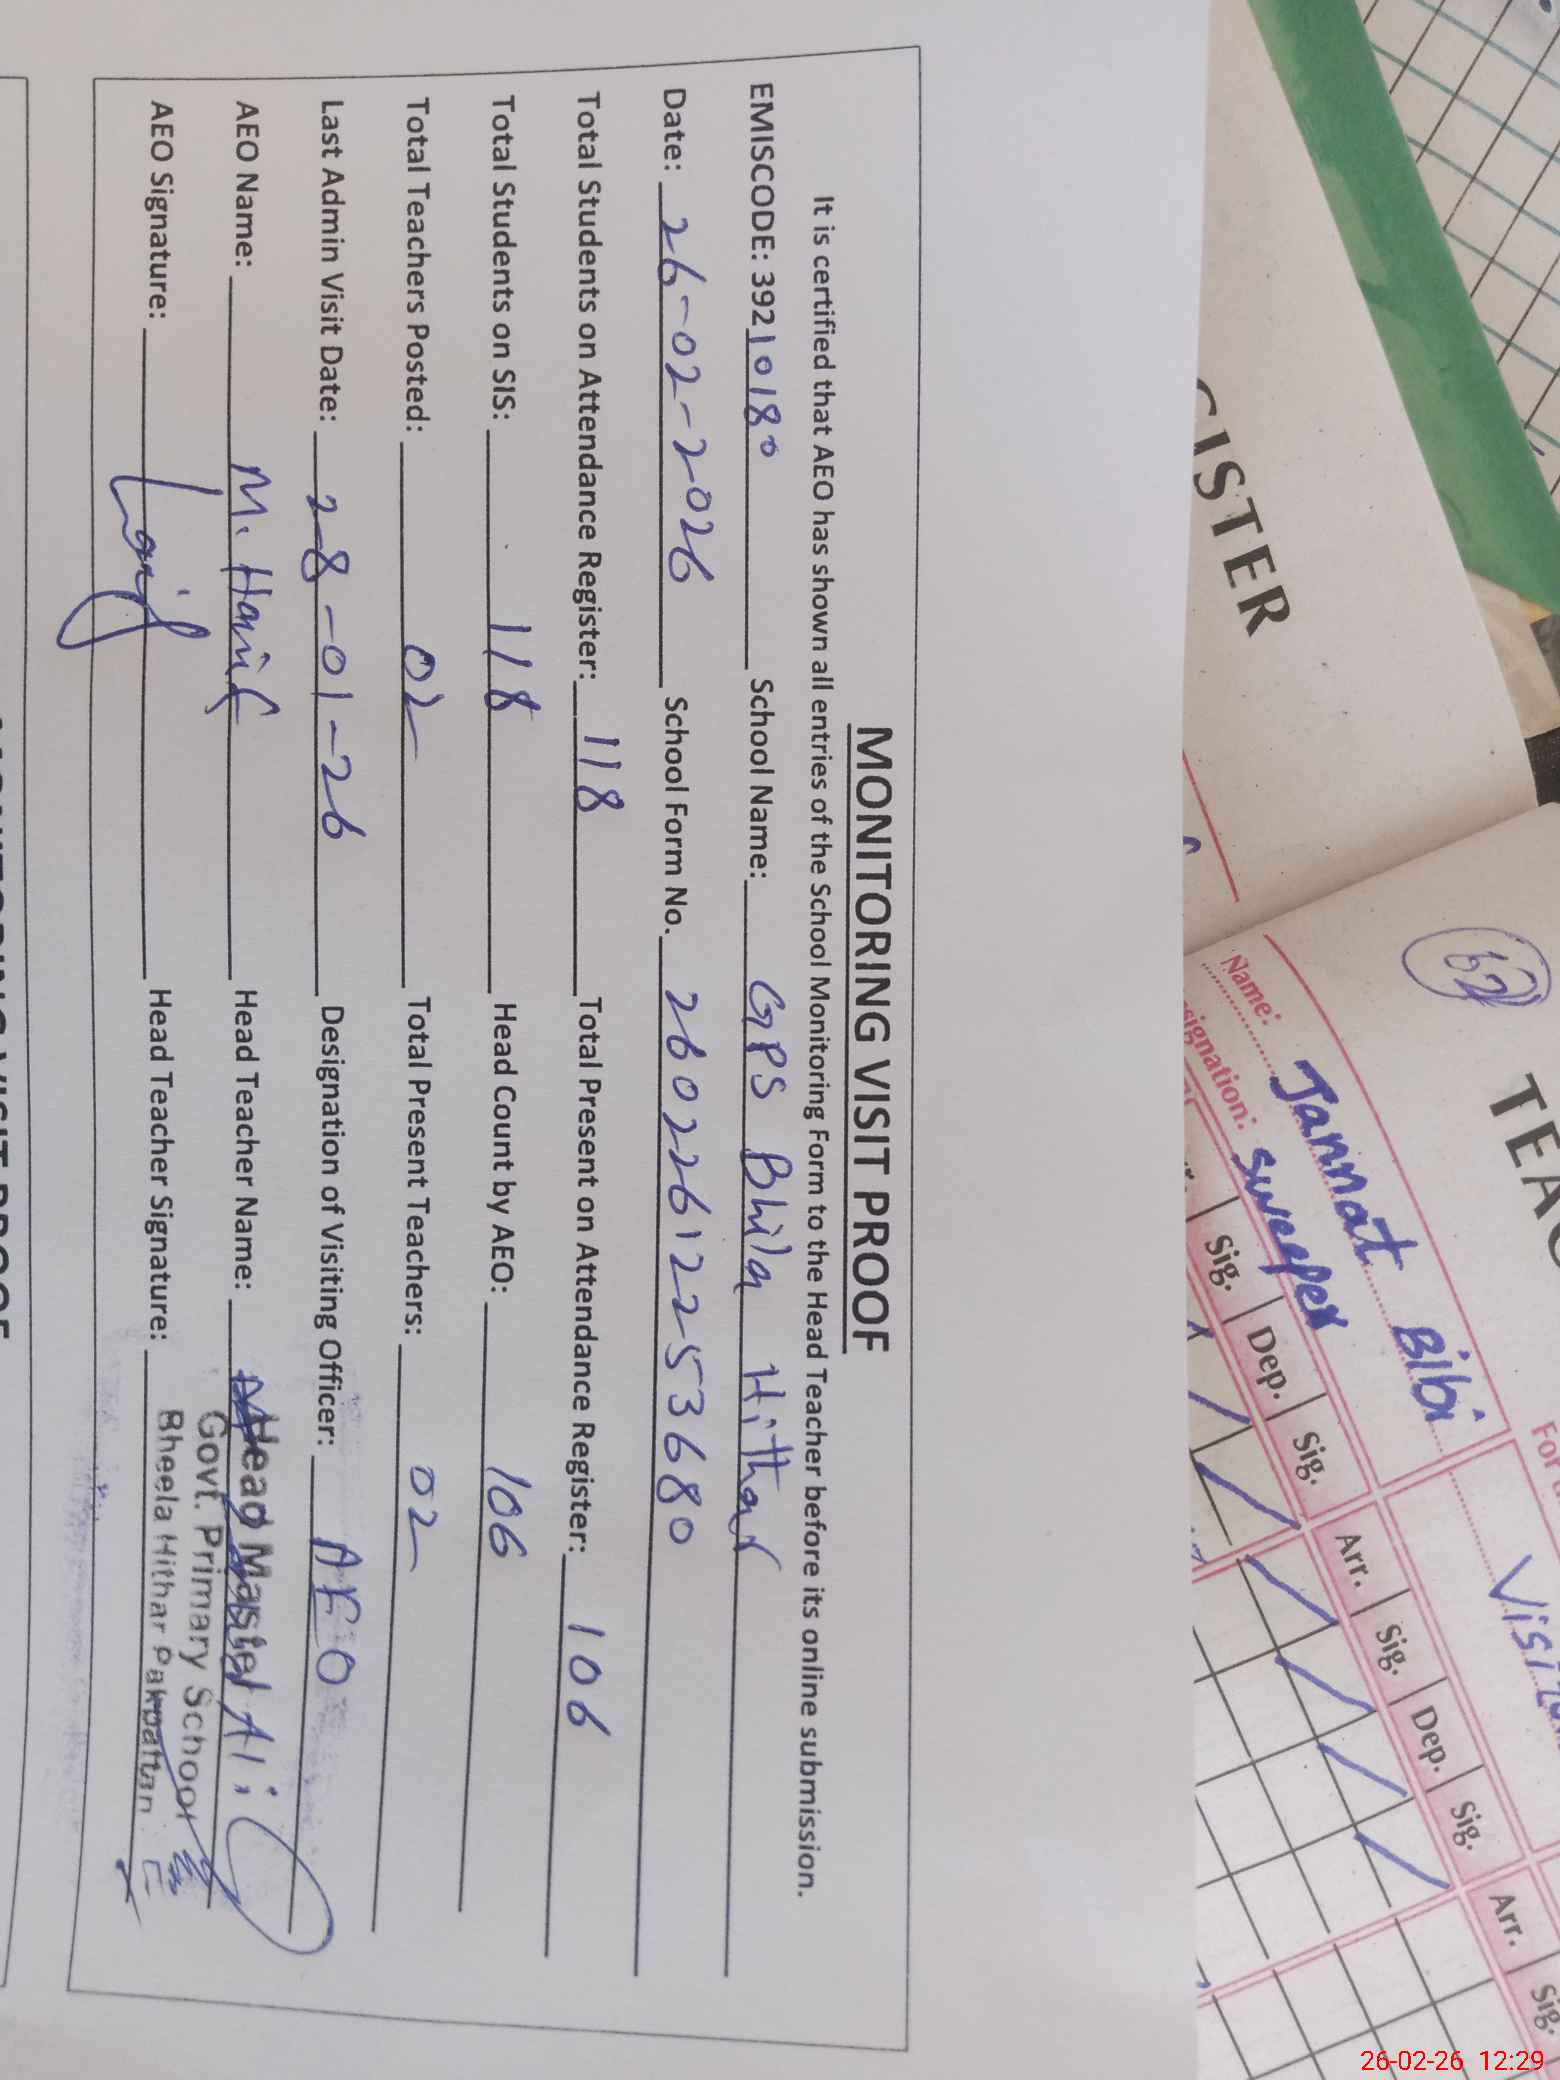 MONITORING VISIT PROOF
It is certified that AEO has shown all entries of the School Monitoring Form to the Head Teacher before its online submission.
EMISCODE: 39210180 School Name: GPS Bhila Hithar
Date: 26-02-2026 School Form No. 260226122253680
Total Students on Attendance Register: 118 Total Present on Attendance Register: 106
Total Students on SIS: 118 Head Count by AEO: 106
Total Teachers Posted: 02 Total Present Teachers: 02
Last Admin Visit Date: 28-01-26 Designation of Visiting Officer: AEO
AEO Name: M. Hanif Head Teacher Name: Ali
Head Master
Govt. Primary School
Bheela Hithar Pakpattan
AEO Signature: Hanif Head Teacher Signature:
MONITORING VISIT PROOF
GISTER
62
TEAC
Name: Jannat Bibi
signation: Sweeper
Sig. Dep. Sig. Arr. Sig. Dep. Sig. Arr. Sig.
26-02-26 12:29